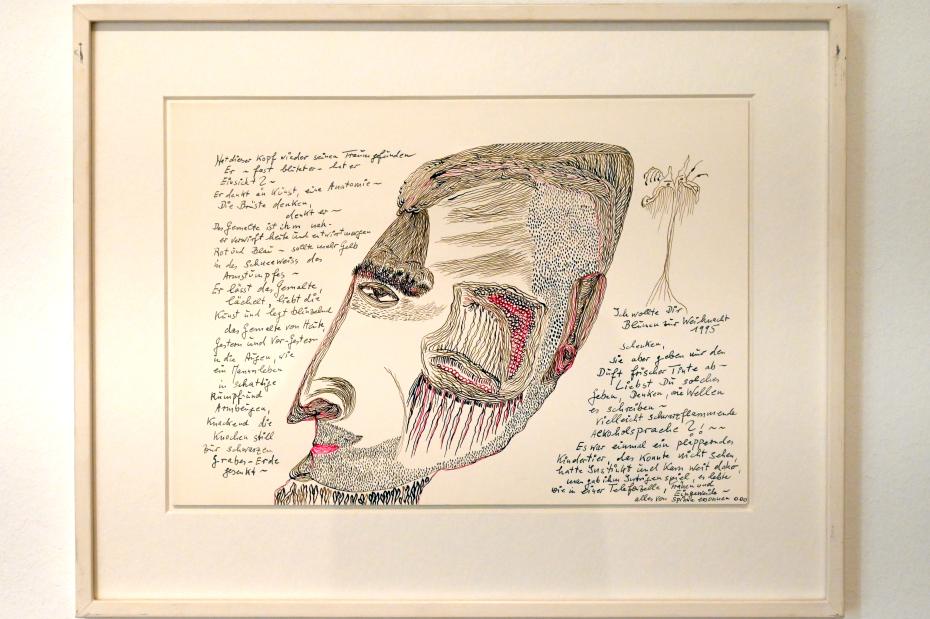 Hat dieser Kopf wieder seinen Traum gefunden
Er – fast blickter – hat er
Einsicht? ~
Er denkt an Kunst, eine Anatomie ~
Die Brüste denken,
denkt er ~
Das Gemalte ist ihm nah –
er verwirft heute und entwirft morgen
Rot und Blau – sollte mehr Gelb
in des Schneeweiss des
Armstumpfes ~
Er lässt das Gemalte,
lächelt, liebt die
Kunst und legt blinzelnd
das Gemalte von Heute,
Gestern und Vor-Gestern
in die Augen, wie
ein Mannsleben
in schattige
Rumpf und
Armbeugen,
Knackend die
Knochen still
zur schwarzen
Grabes-Erde
gesenkt ~
Ich wollte Dir
Blumen zur Weihnacht
1995
schenken,
sie aber geben nur den
Duft frischer Tinte ab –
Liebst Du solches
geben, Denken, wie Wellen
es schreiben –
Vielleicht schwarzflammende
Alkoholsprache ?! ~~
Es war einmal ein plapperndes
Kindertier, das konnte nicht sehen,
hatte Instinkt und kam weit daher,
man gab ihm Intrigenspiel, es lebte
wie in einer Telefonzelle, Frauen und
Eingeweide ~
alles von Spinne ersonnen ooo